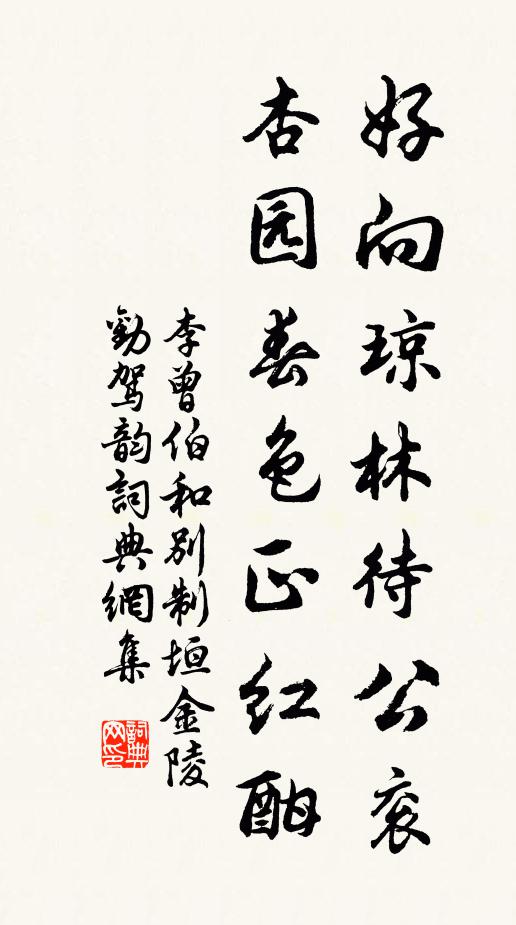 好向琼林待公衮
杏园春色正红酣
李曾伯和别制垣金陵
勸駕韵詞典網集
詞典网印